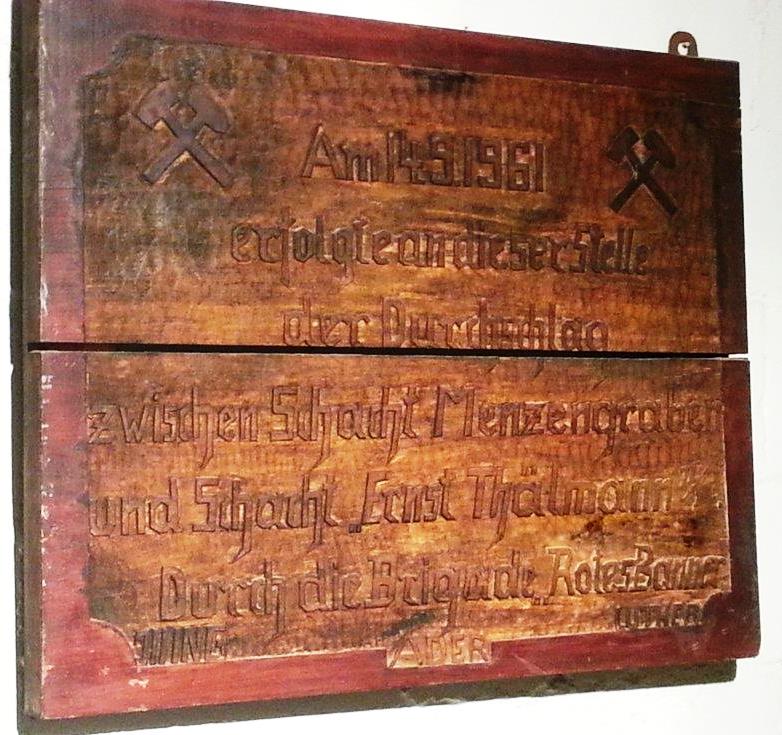 Am 14.9.1961
erfolgte an dieser Stelle
der Durchschlag
zwischen Schacht Menzengraben
und Schacht „Ernst Thälmann“
Durch die Brigade „Rotes Banner
ADER